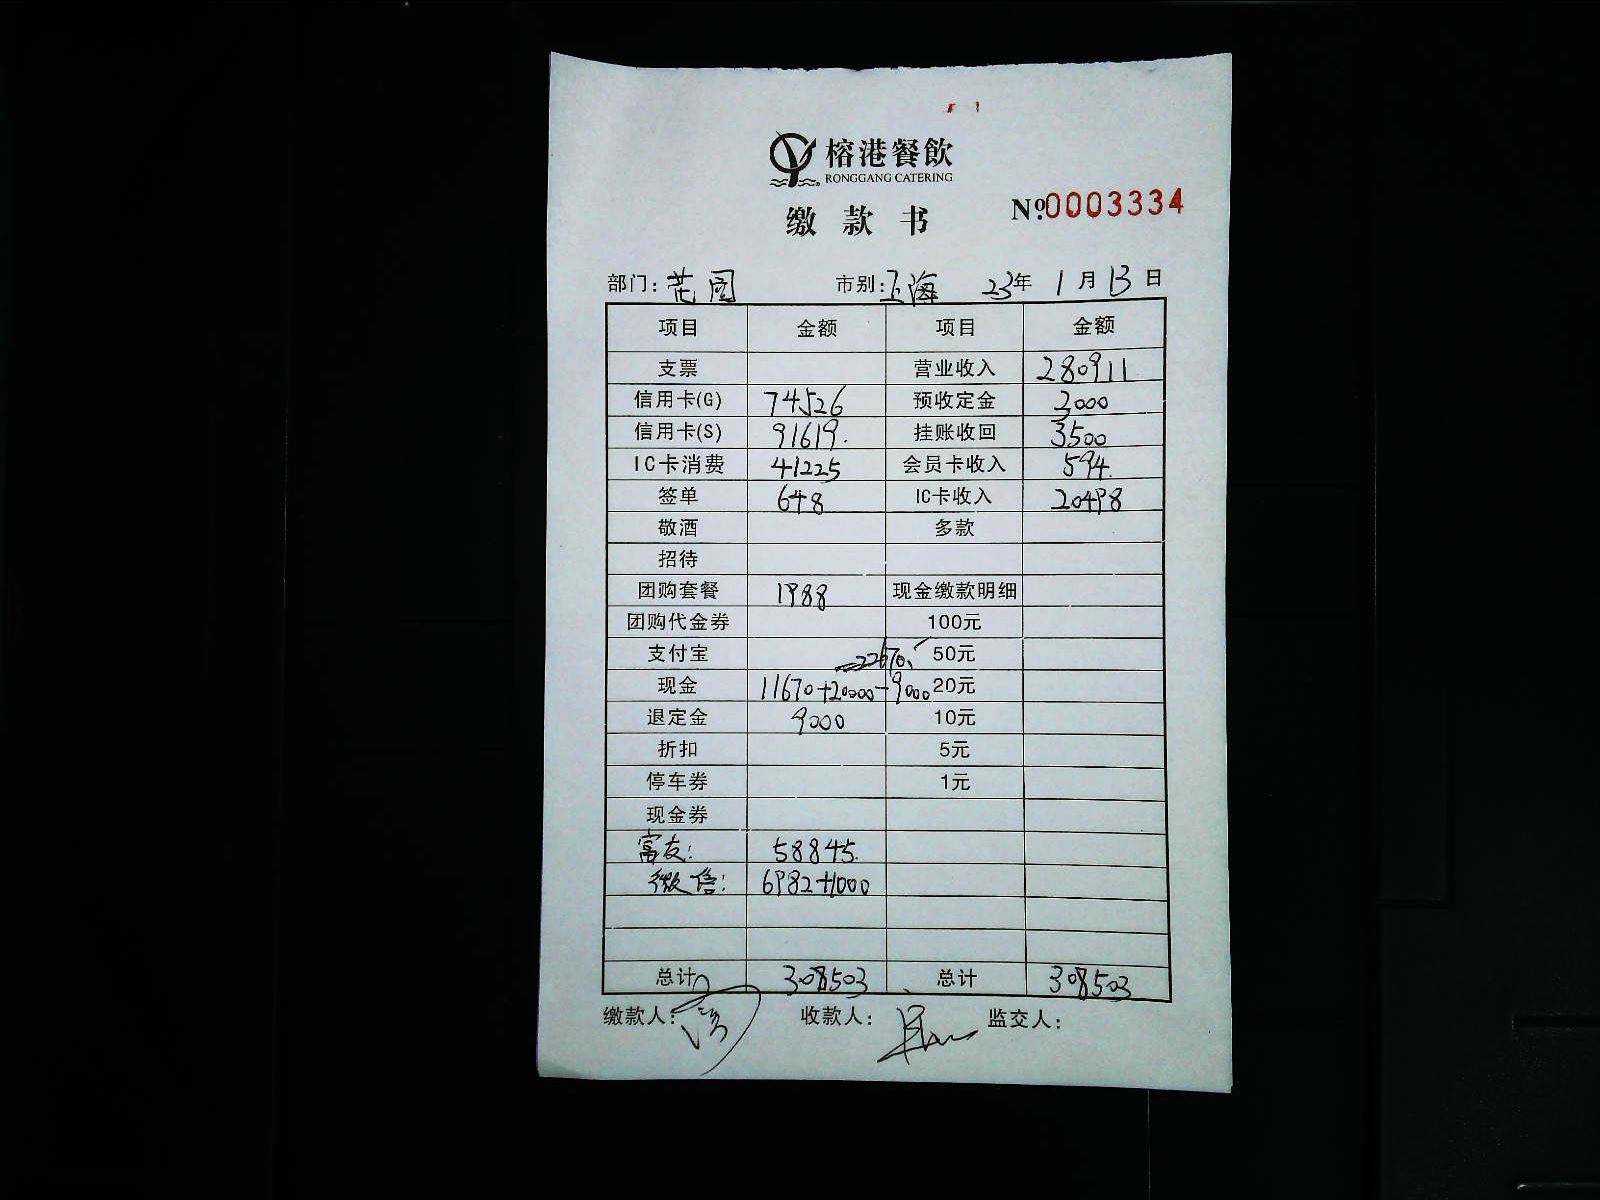 榕港餐飲
RONGGANG CATERING
缴款书
№.0003334
部门：花园 市别：上海 23年 1月 13日
项目 金额 项目 金额
支票 营业收入 280911
信用卡(G) 74526 预收定金 3000
信用卡(S) 91619. 挂账收回 3500
IC卡消费 41225 会员卡收入 594.
签单 648 IC卡收入 20498
敬酒 多款
招待
团购套餐 1988 现金缴款明细
团购代金券 100元
支付宝 22670. 50元
现金 11670+20000-9000 20元
退定金 9000 10元
折扣 5元
停车券 1元
现金券
富友： 58845.
微信： 6982+1000
总计 308503 总计 308503
缴款人： 收款人： 监交人：